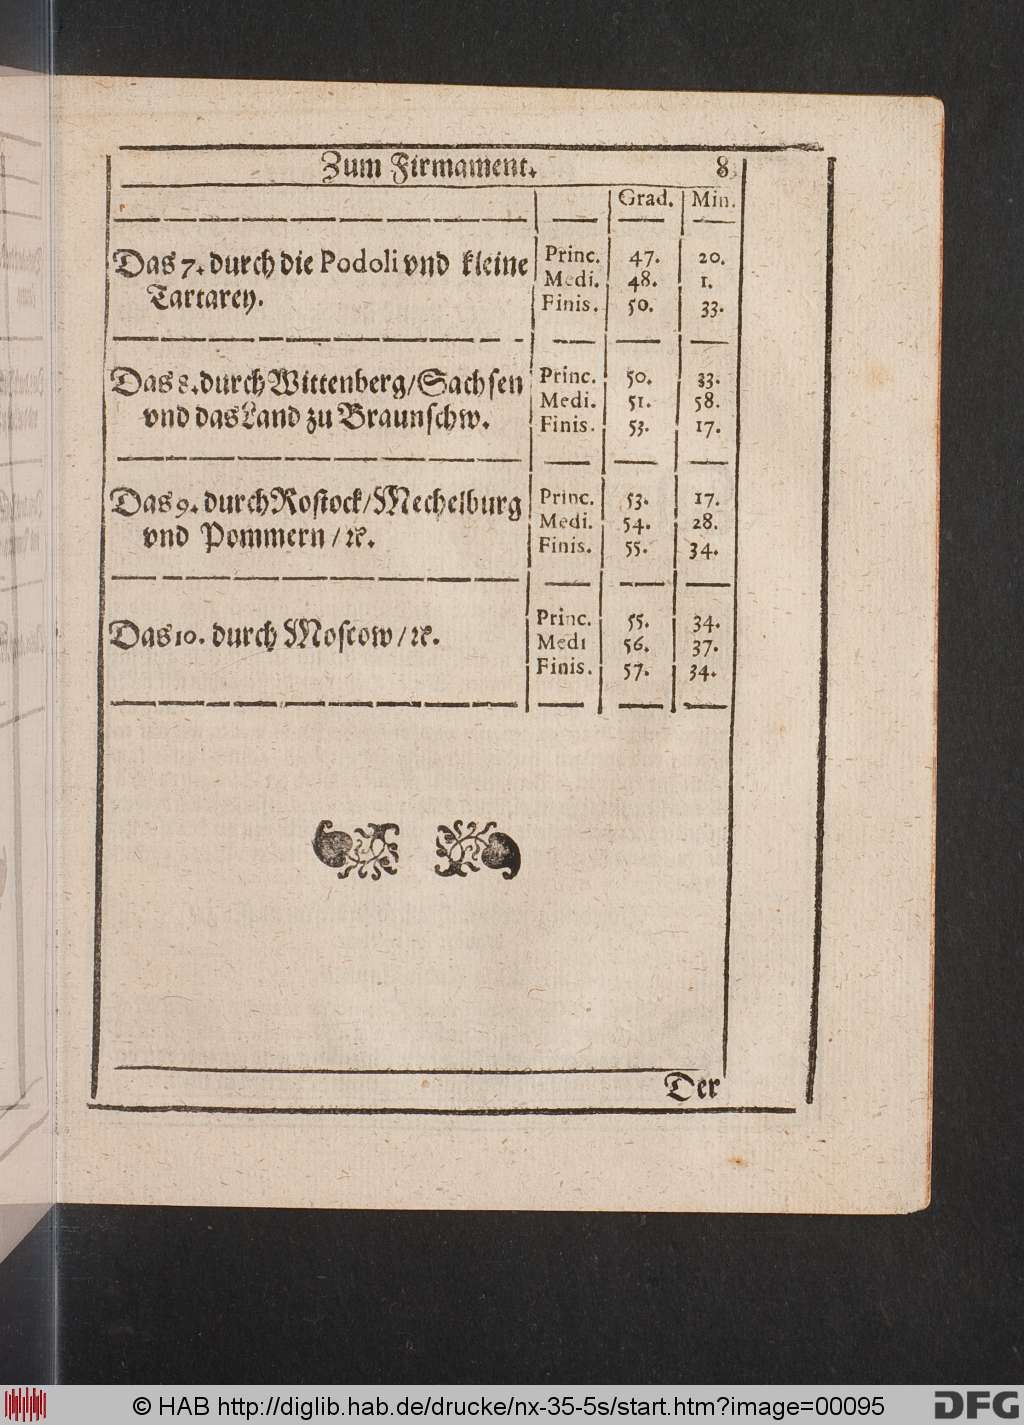 Zum Firmament. 8
Grad. Min.
Das 7. durch die Podoli vnd kleine
Tartarey.
Princ. 47. 20.
Medi. 48. 1.
Finis. 50. 33.
Das 8. durch Wittenberg/Sachsen
vnd das Land zu Braunschw.
Princ. 50. 33.
Medi. 51. 58.
Finis. 53. 17.
Das 9. durch Rostock/Mechelburg
vnd Pommern/ꝛc.
Princ. 53. 17.
Medi. 54. 28.
Finis. 55. 34.
Das 10. durch Moscow/ꝛc.
Princ. 55. 34.
Medi 56. 37.
Finis. 57. 34.
Der
© HAB http://diglib.hab.de/drucke/nx-35-5s/start.htm?image=00095
DFG